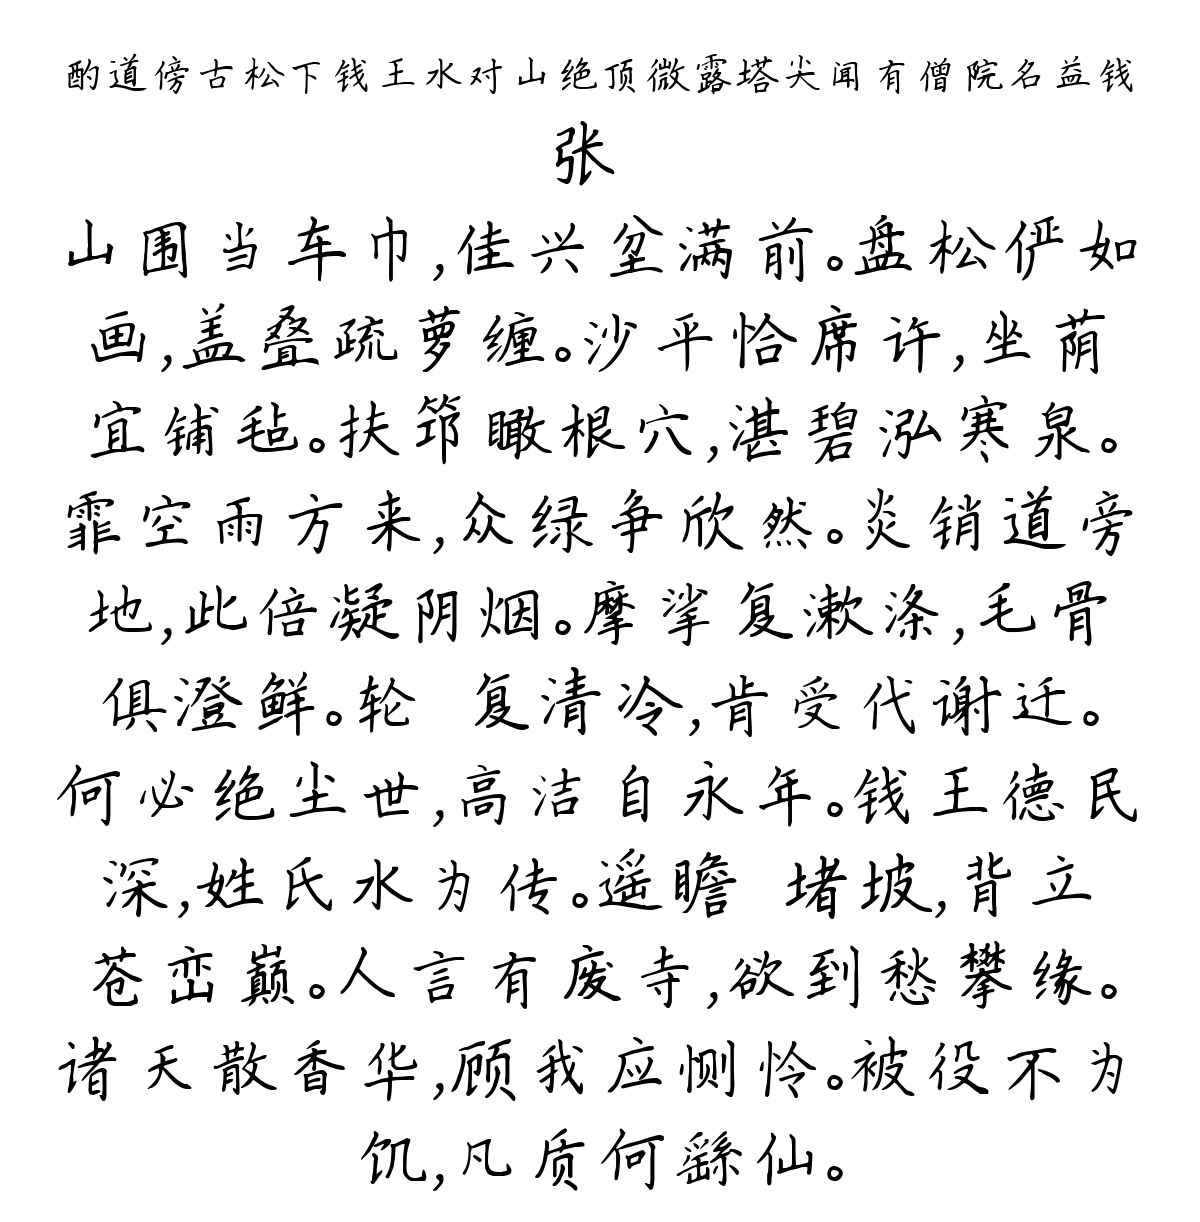 酌道傍古松下钱王水对山绝顶微露塔尖闻有僧院名益钱
张
山围当车巾,佳兴坌满前。盘松俨如
画,盖叠疏萝缠。沙平恰席许,坐荫
宜铺毡。扶筇瞰根穴,湛碧泓寒泉。
霏空雨方来,众绿争欣然。炎销道旁
地,此倍凝阴烟。摩挲复漱涤,毛骨
俱澄鲜。轮 复清冷,肯受代谢迁。
何必绝尘世,高洁自永年。钱王德民
深,姓氏水为传。遥瞻 堵坡,背立
苍峦巅。人言有废寺,欲到愁攀缘。
诸天散香华,顾我应恻怜。被役不为
饥,凡质何繇仙。